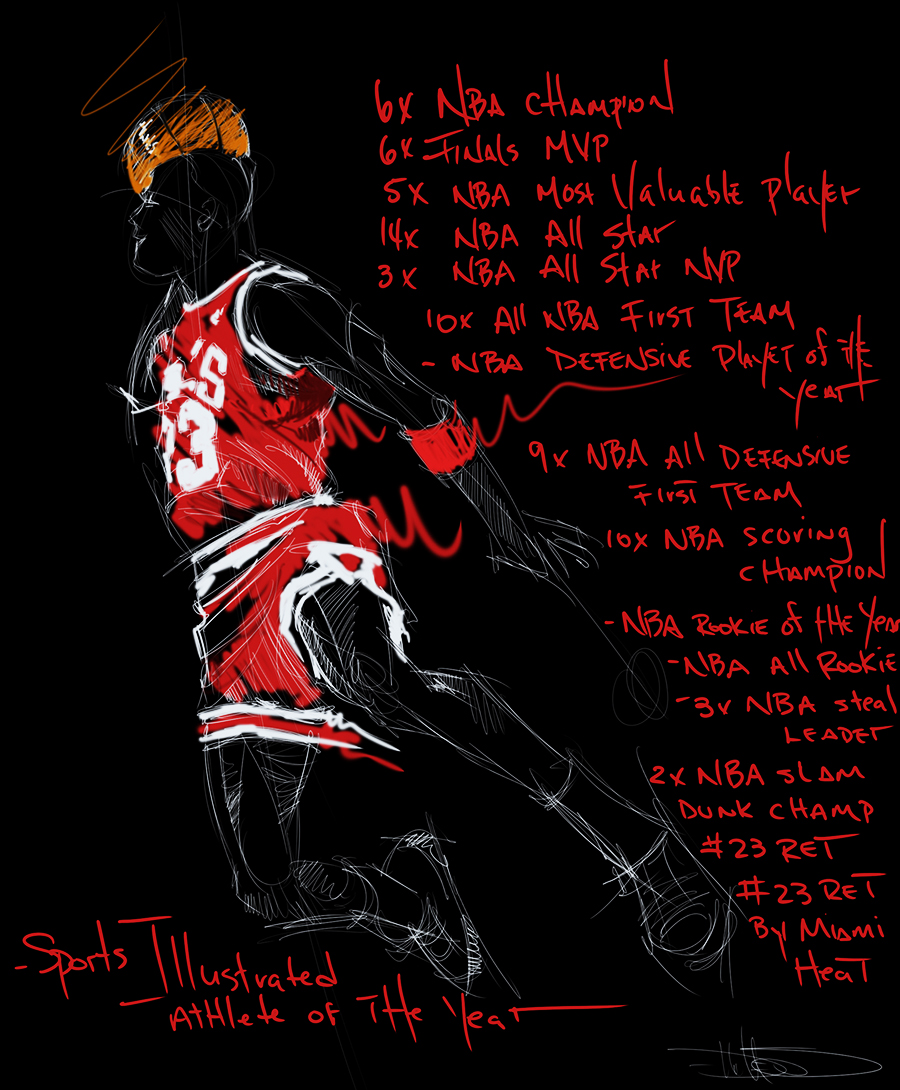 6x NBA CHAMPION
6x Finals MVP
5x NBA Most Valuable Player
14x NBA All Star
3x NBA All Star MVP
10x All NBA First Team
- NBA Defensive Player of the
Year
9x NBA All Defensive
First Team
10x NBA scoring
Champion
- NBA Rookie of the Year
- NBA All Rookie
- 3x NBA steal
Leader
2x NBA slam
Dunk Champ
#23 RET
#23 RET
By Miami
Heat
- Sports Illustrated
Athlete of The Year
'S
23